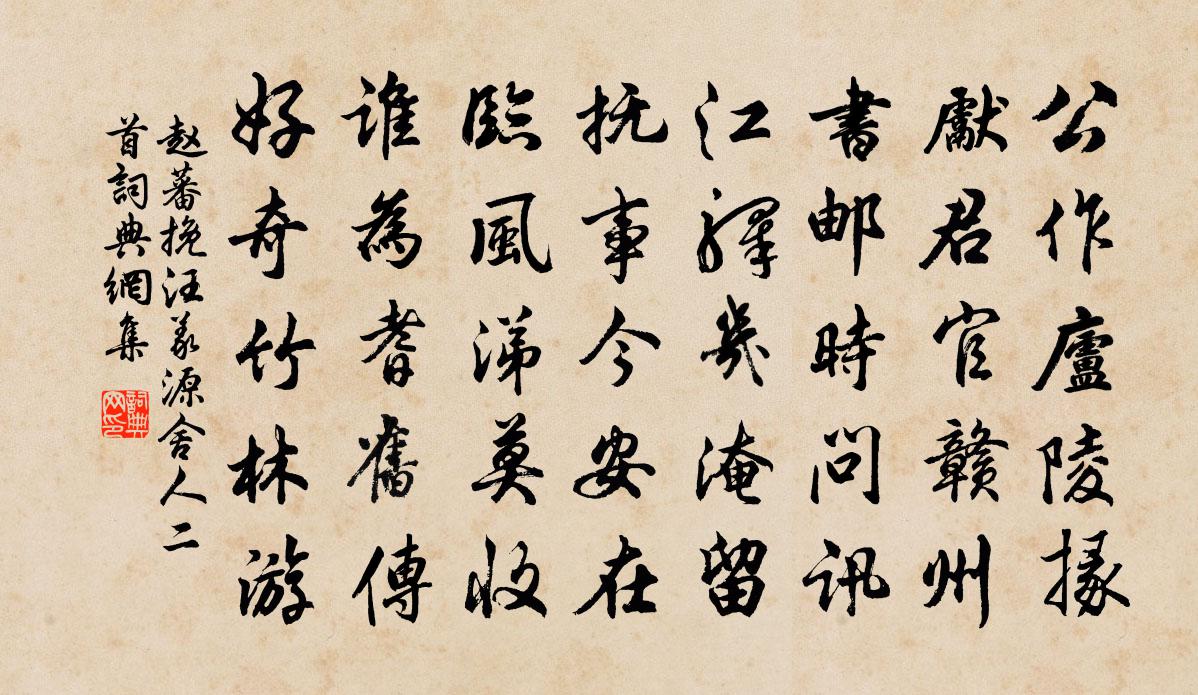 公作廬陵掾
獻君官贛州
書邮時問訊
江驛幾淹留
抚事今安在
臨風涕莫收
誰為耆舊傳
好奇竹林游
赵蕃挽汪义源舍人二
首詞典網集
詞典
网印